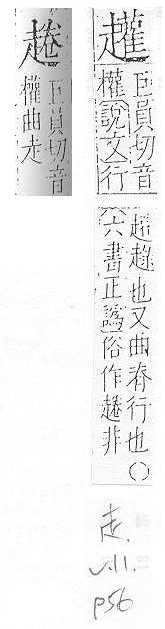 巨員切音
權說文行
趢趚也又曲脊行也○
六書正譌俗作 非
巨員切音
權曲走
走.
v.11.
p56